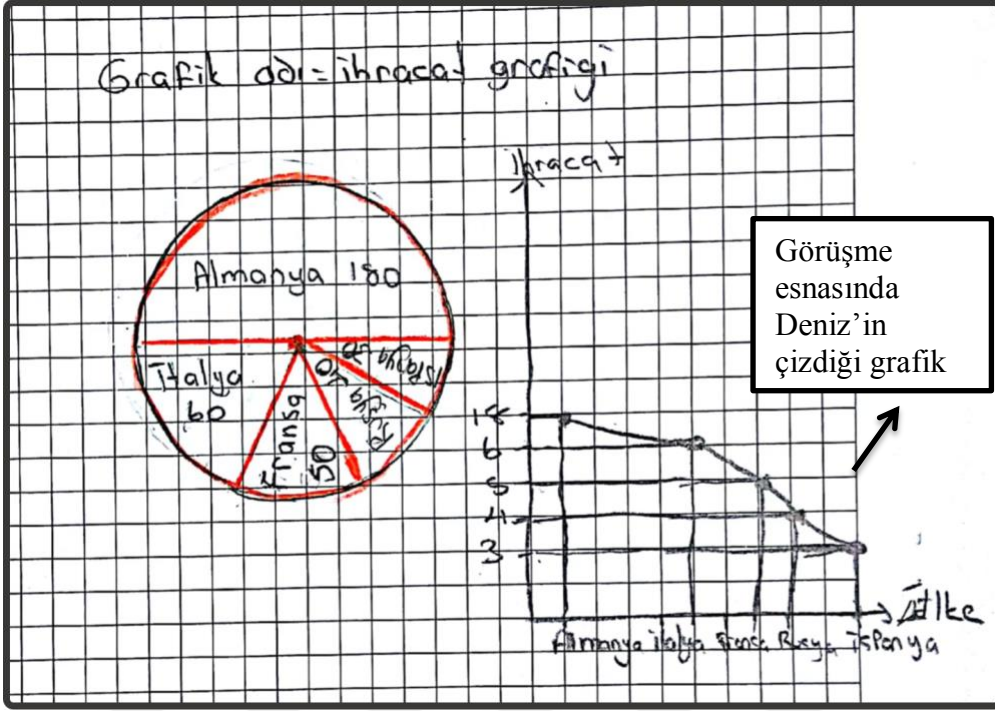 Grafik adı = ihracat grafiği
Almanya 180
İtalya
60
Fransa
50
Rusya
40
İspanya 30
İhracat
18
6
5
4
3
Ülke
Almanya İtalya Fransa Rusya İspanya
Görüşme
esnasında
Deniz'in
çizdiği grafik